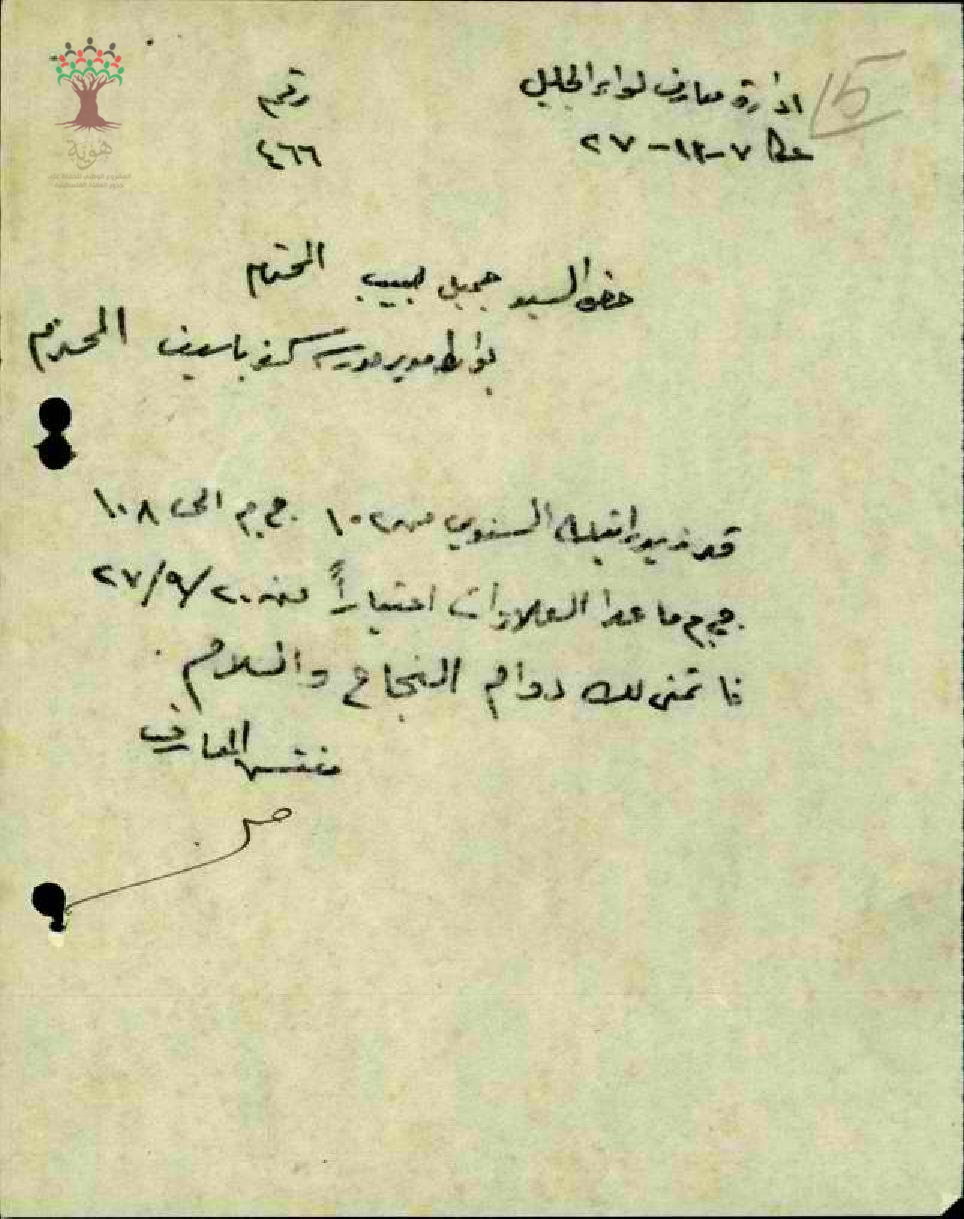 15
ادارة معارف لواء الجليل
رقم
عكا ٧-١٢-٢٧
٤٦٦
حضرة السيد جميل حبيب المحترم
بواسطة مدير مدرسة كفر ياسيف المحترم
قد زيد راتبك السنوي من ١٠٢ ج.م الى ١٠٨
ج.م ما عدا العلاوات اعتباراً من ٢٠/٩/٢٧
فاتمنى لك دوام النجاح والسلام.
مفتش المعارف
هوية